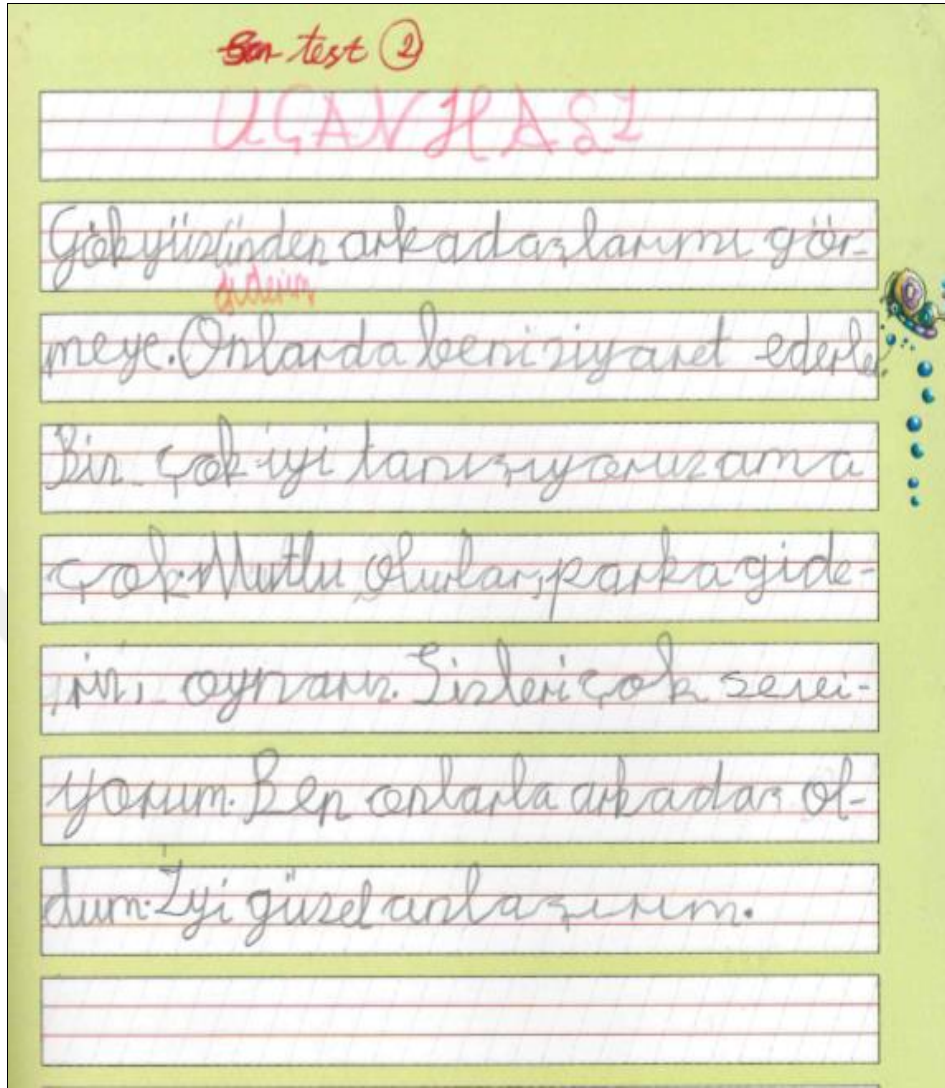 test 2
UÇAN HALI
Gökyüzünden arkadaşlarımı gör-
giderim
meye. Onlarda beni ziyaret ederler.
Biz çok iyi tanışıyoruz ama
çok. Mutlu olurlar, parka gide-
riz, oynarız. Sizleri çok sevi-
yorum. Ben onlarla arkadaş ol-
dum. İyi güzel anlaşırım.